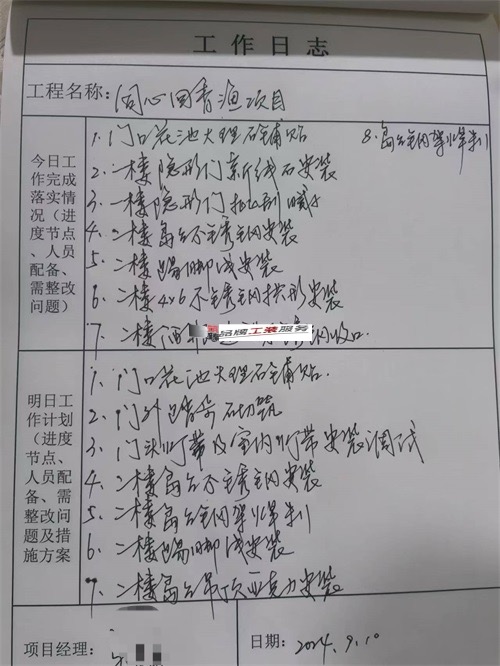 工作日志
工程名称：同心回青渔项目
今日工作完成落实情况（进度节点、人员配备、需整改问题）
1. 门口花池大理石铺贴
8. 岛台钢架焊制
2. 一楼隐形门新线石安装
3. 一楼隐形门
4. 二楼岛台不锈钢安装
5. 二楼踢脚线安装
6. 二楼4×6不锈钢拱形安装
7. 二楼 收口
品牌工装服务
明日工作计划（进度节点、人员配备、需整改问题及措施方案
1. 门口花池大理石铺贴
2. 门外 砌筑
3. 门头灯带及室内灯带安装调试
4. 二楼岛台不锈钢安装
5. 二楼岛台钢架焊制
6. 二楼踢脚线安装
7. 二楼岛台吊顶亚克力安装
项目经理：
日期：2024.9.10